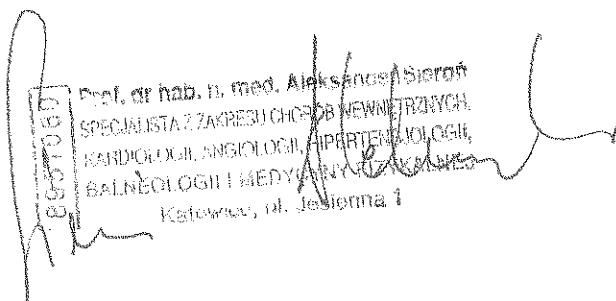 Prof. dr hab. n. med. Aleksander Sieroń
SPECJALISTA Z ZAKRESU CHORÓB WEWNĘTRZNYCH,
KARDIOLOGII, ANGIOLOGII, HIPERTENSJOLOGII,
BALNEOLOGII I MEDYCYNY FIZYKALNEJ
Katowice, ul. Jesionna 1